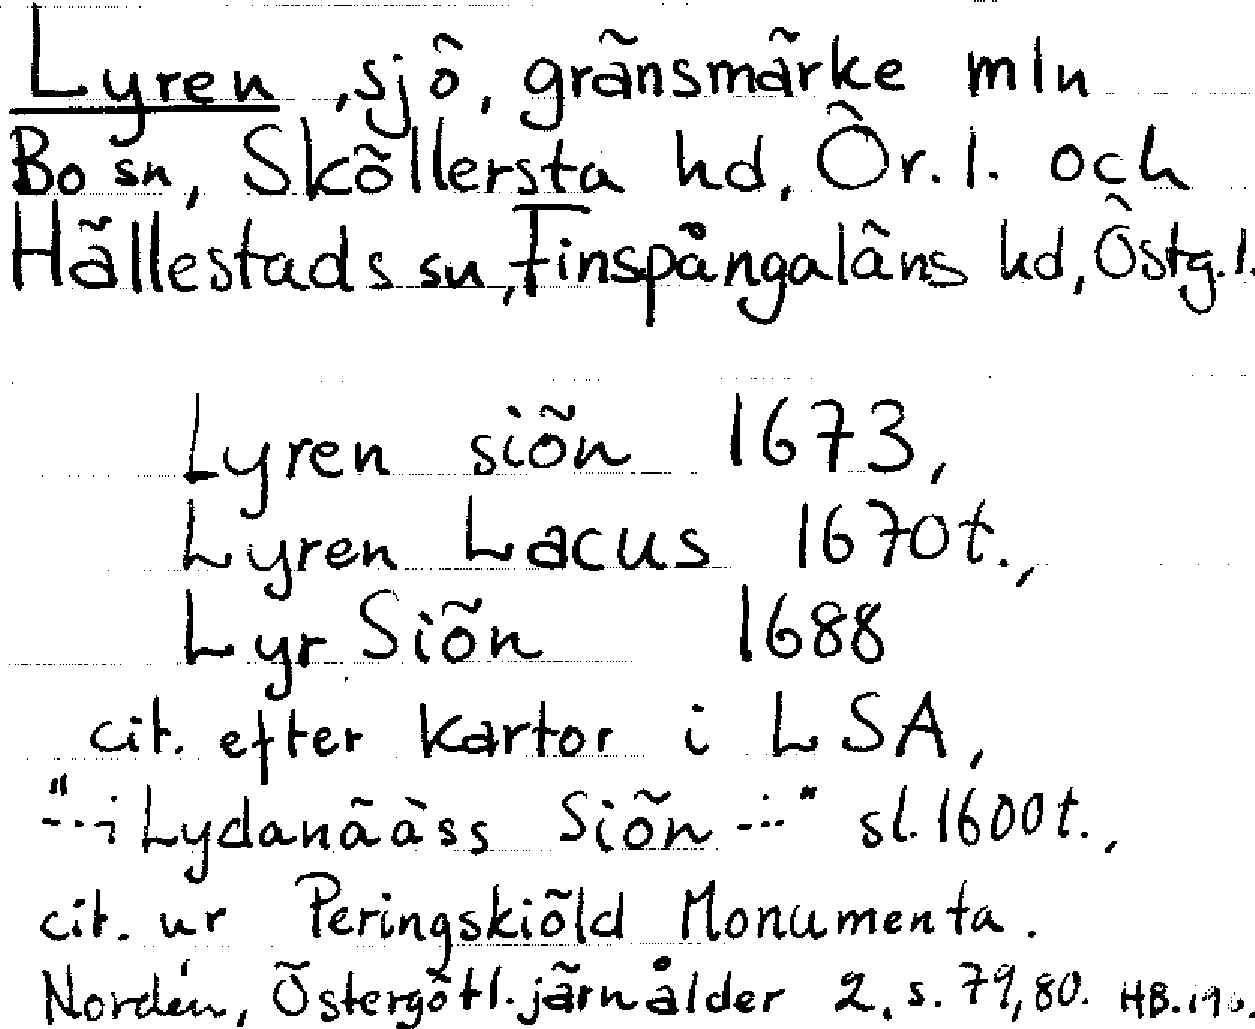 Lyren, sjö, gränsmärke mln
Bo sn, Sköllersta hd, Ör.l. och
Hällestads sn, Finspångaläns hd, Östg.l.
Lyren siön 1673,
Lyren Lacus 1670t.,
Lyr Siön 1688
cit. efter kartor i LSA,
"--- Lydanääss Siön ---" sl.1600t.,
cit. ur Peringskiöld Monumenta.
Nordén, Östergötl. järnålder 2, s. 79,80. HB.